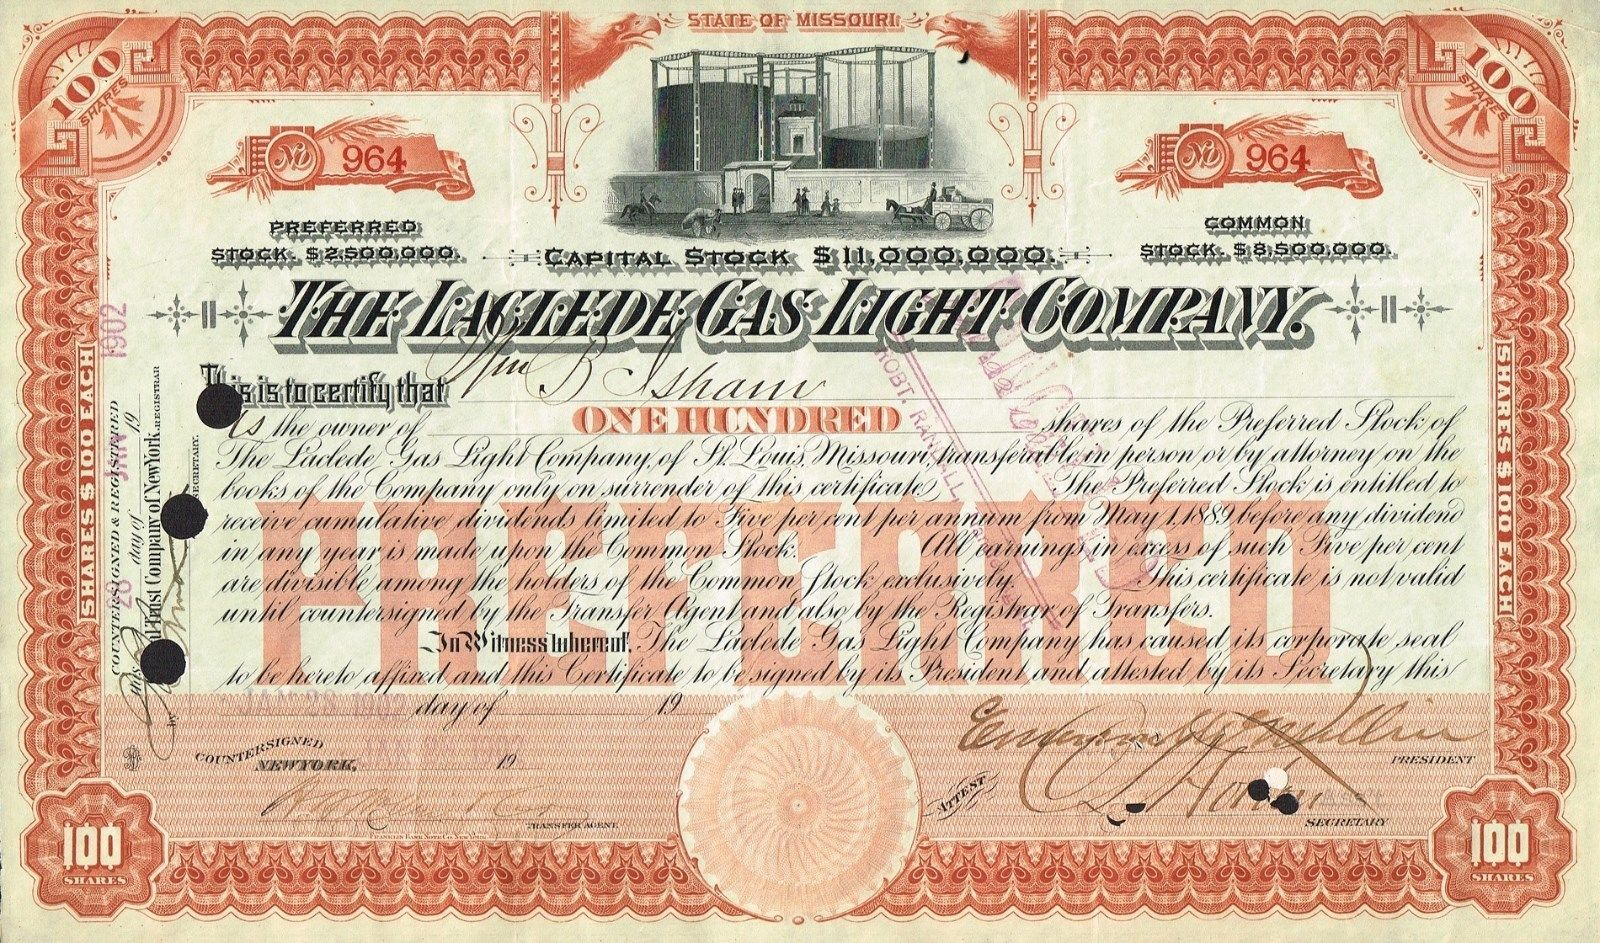 STATE OF MISSOURI.
100 SHARES
100 SHARES
No 964
No 964
PREFERRED STOCK. $2,500,000.
CAPITAL STOCK $11,000,000.
COMMON STOCK. $8,500,000.
THE LACLEDE GAS LIGHT COMPANY.
This is to certify that Wm B Isham
is the owner of ONE HUNDRED shares of the Preferred Stock of
The Laclede Gas Light Company, of St. Louis, Missouri, transferable in person or by attorney on the
books of the Company only on surrender of this certificate. The Preferred Stock is entitled to
receive cumulative dividends limited to Five per cent per annum from May 1, 1889, before any dividend
in any year is made upon the Common Stock. All earnings in excess of such Five per cent
are divisible among the holders of the Common Stock exclusively. This certificate is not valid
until countersigned by the Transfer Agent and also by the Registrar of Transfers.
In Witness whereof, The Laclede Gas Light Company has caused its corporate seal
to be hereto affixed and this Certificate to be signed by its President and attested by its Secretary this
JAN 28 1902 day of 19
PREFERRED
COUNTERSIGNED
NEW YORK, 19
TRANSFER AGENT.
FRANKLIN BANK NOTE CO. NEW YORK.
Emerson McMillin
PRESIDENT
ATTEST
SECRETARY
SHARES $100 EACH
SHARES $100 EACH
COUNTERSIGNED & REGISTERED
this 28 day of JAN 1902 19
Trust Company of New York. REGISTRAR
by
SECRETARY.
ROBT. RANDELL
100 SHARES
100 SHARES